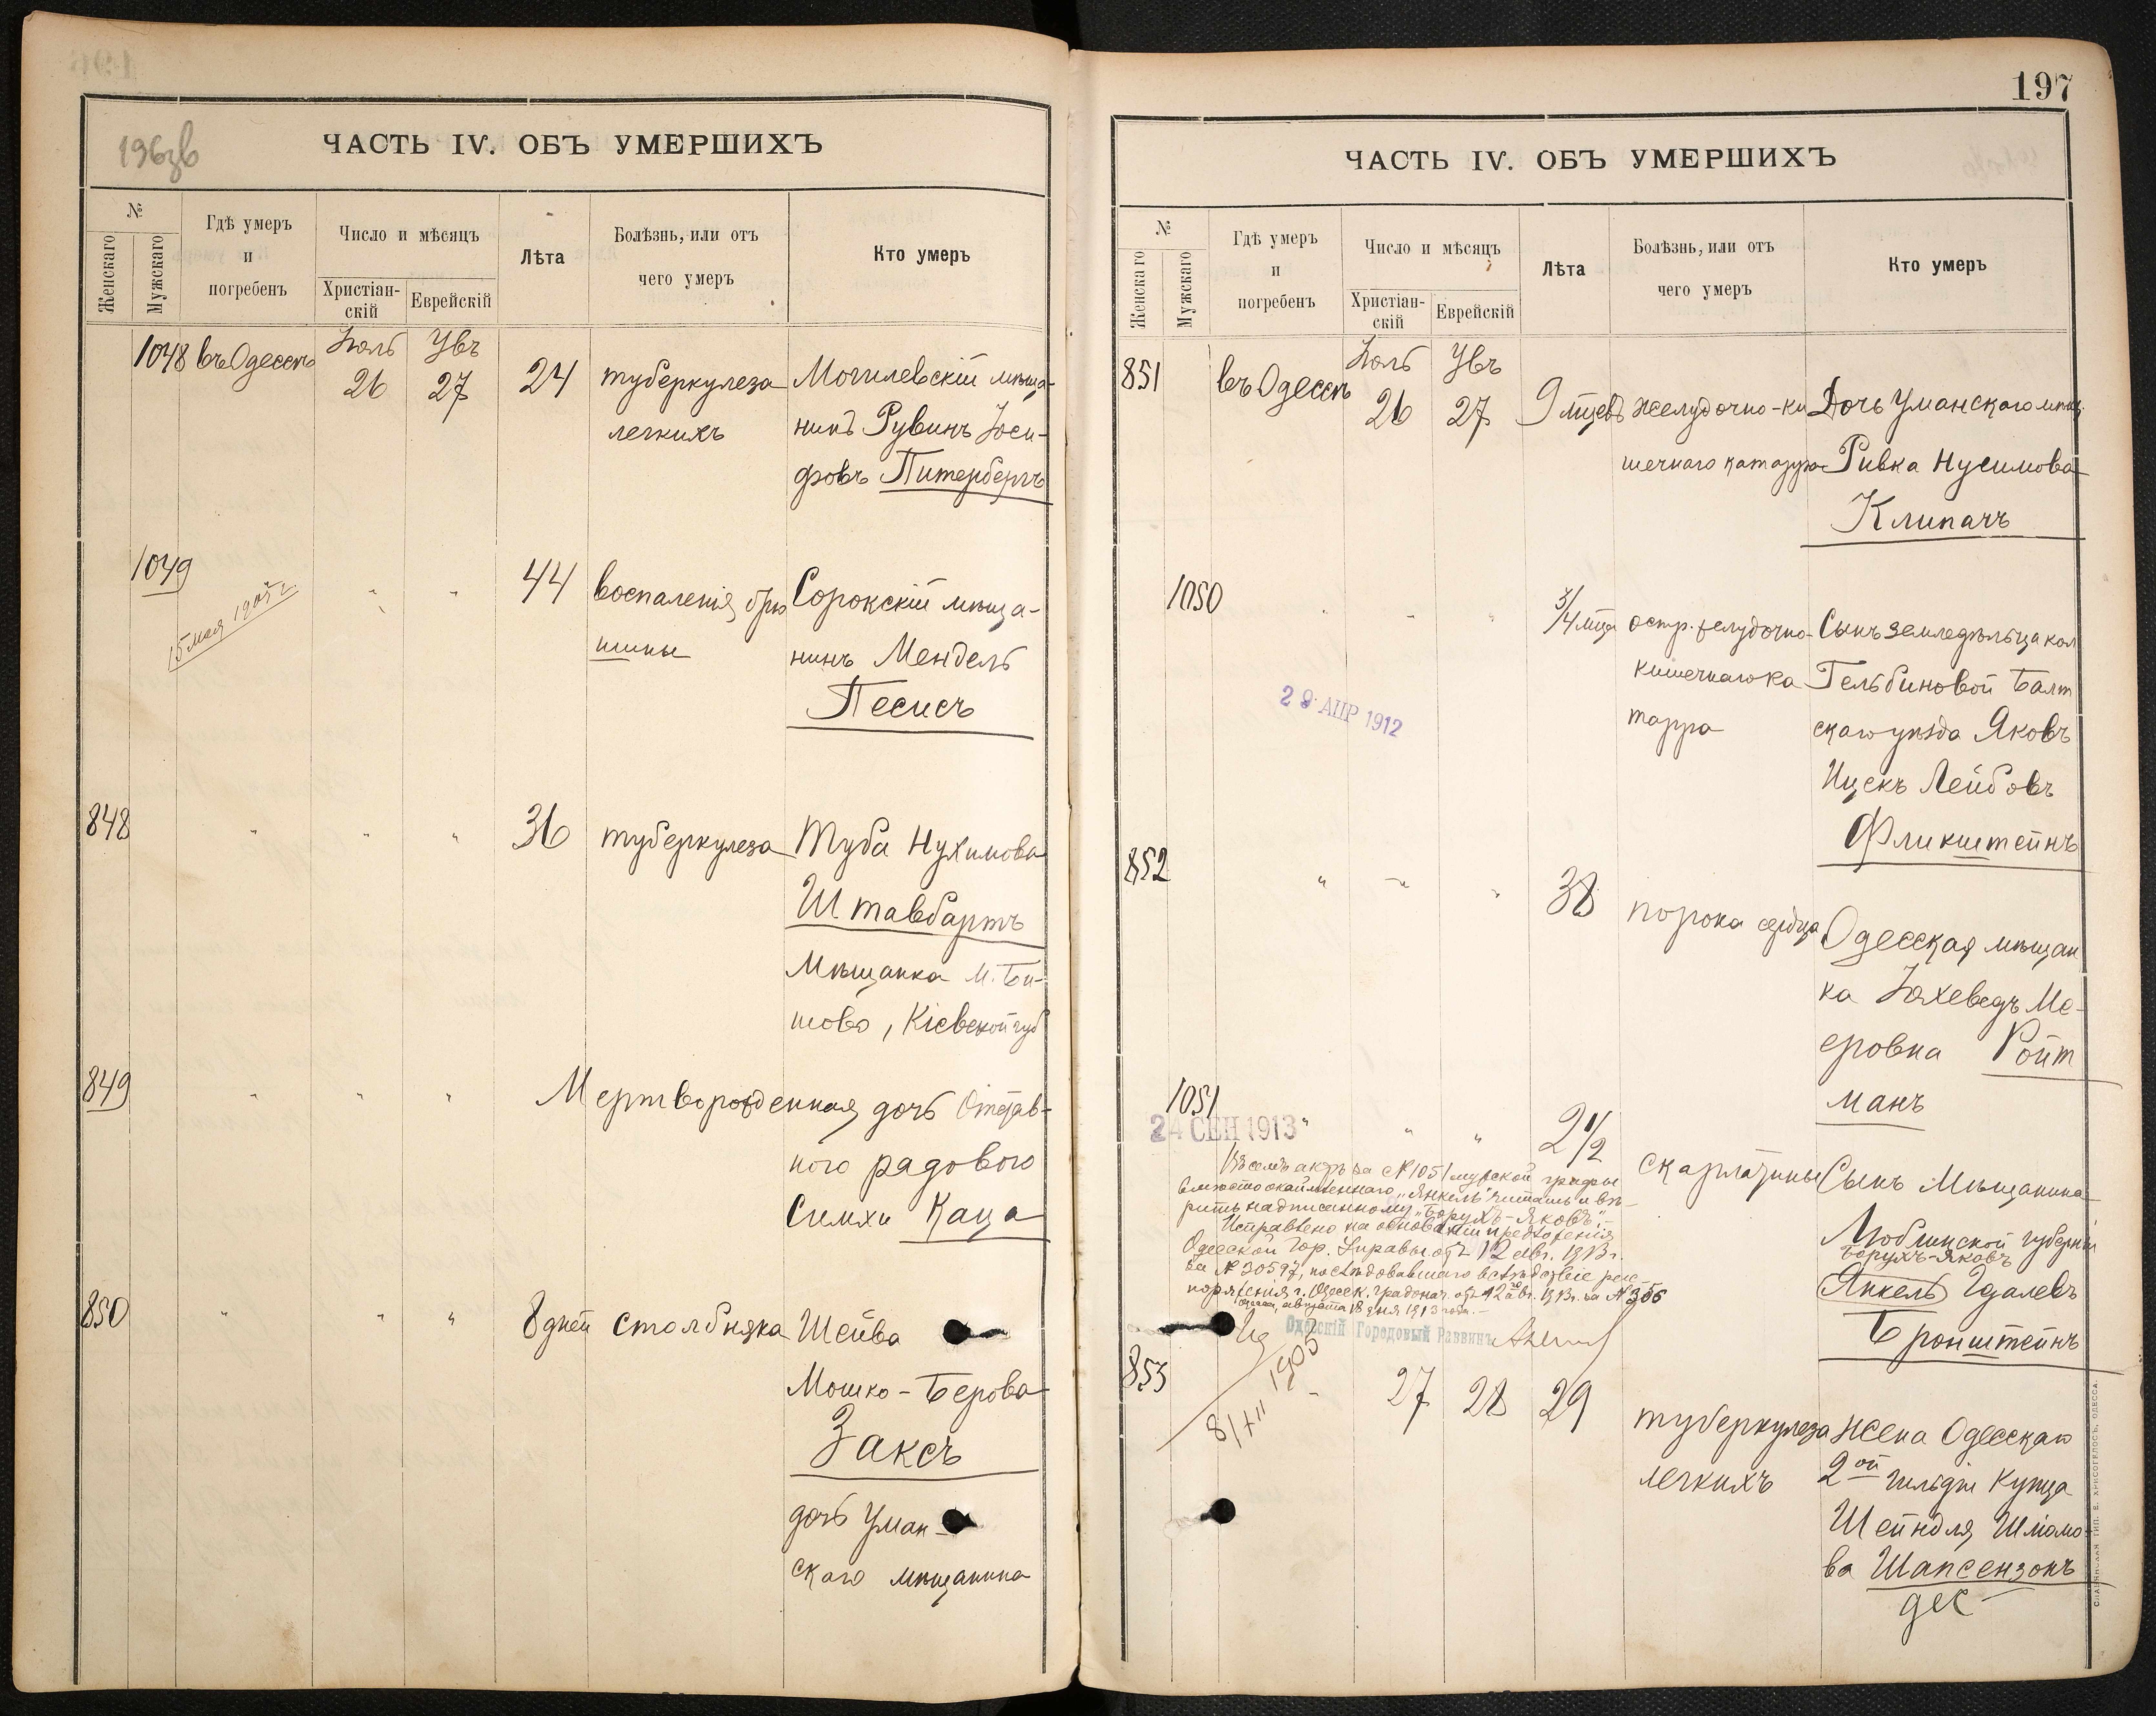 196зв
ЧАСТЬ IV. ОБЪ УМЕРШИХЪ
№
Женскаго
Мужскаго
Гдѣ умеръ
и
погребенъ
Число и мѣсяцъ
Христіан-
скій
Еврейскій
Лѣта
Болѣзнь, или отъ
чего умеръ
Кто умеръ
1048 въ Одессѣ Іюль 26 Увъ 27 24 туберкулеза Могилевскій мѣща-
легкихъ нинъ Рувинъ Іоси-
фовъ Питербергъ
1049 44 воспаленія брю Сорокскій мѣща-
15 мая 1905 г.
шины нинъ Мендель
Песисъ
848 " " " 36 туберкулеза Туба Нухимова
Штавбартъ
Мѣщанка м.
Кіевской губ
849 " " " Мертворожденная дочь Отстав-
ного рядового
Симхи Каца
850 " " " 8 дней столбняка Шейва
Мошко-Берова
Заксъ
дочь Уман-
скаго мѣщанина
197
ЧАСТЬ IV. ОБЪ УМЕРШИХЪ
№
Женскаго
Мужскаго
Гдѣ умеръ
и
погребенъ
Число и мѣсяцъ
Христіан-
скій
Еврейскій
Лѣта
Болѣзнь, или отъ
чего умеръ
Кто умеръ
851 въ Одессѣ Іюль 26 Увъ 27 9 мцевъ желудочно-ки Дочь Уманскаго мѣщ.
шечнаго катарра Ривка Нусимова
Клипачъ
1050 " " " 3/4 мца остр. желудочно- Сынъ земледѣльца кол
кишечнаго ка Гельбиновой Балт
28 АПР 1912
тарра скаго уѣзда Яковъ
Ицекъ Лейбовъ
Фликштейнъ
852 " " " 38 порока сердца Одесская мѣщан
ка Іохеведъ Ме-
еровна Ройт
манъ
1051 " " " 2 1/2 скарлатины Сынъ Мѣщанина
24 СЕН 1913
Люблинской губерніи
Борухъ-Яковъ
Янкель Гдалевъ
Бронштейнъ
Въ семъ актѣ за № 1051 мужской графы
вмѣсто окаймленнаго "Янкель" читать и вѣ-
рить надписанному "Борухъ-Яковъ".-
Исправлено на основаніи предложенія
Одесской Гор. Управы отъ 12 авг. 1913 г.
за № 30597, послѣдовавшаго вслѣдствіе рас-
поряженія г. Одесск. градонач. отъ авг. 1913 г. за №
Одесса, августа 18 дня 1913 года.-
Одесскій Городовый Раввинъ
853 " 27 28 29 туберкулеза жена Одесскаго
8/XII 1905
легкихъ 2ой гильдіи купца
Шейндля Шліомо-
ва Шапсензонъ
СЛАВЯНСКАЯ ТИП. Е. ХРИСОГЕЛОСЪ, ОДЕССА.